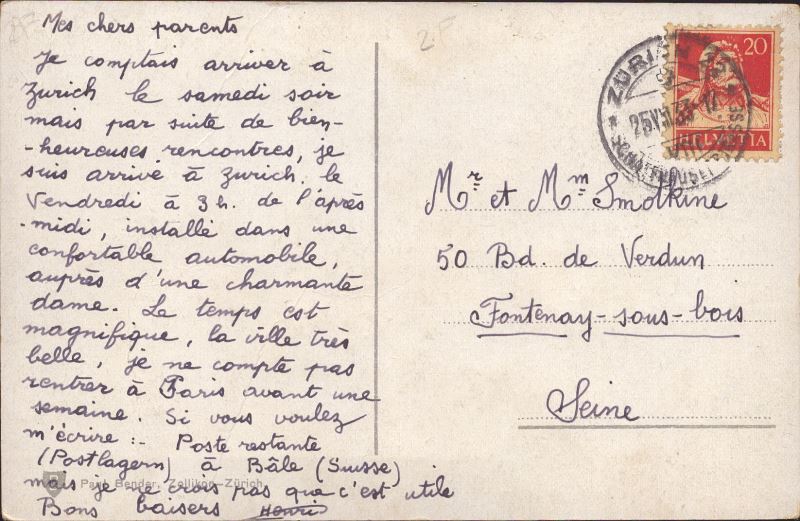 Mes chers parents
Je comptais arriver à
Zurich le samedi soir
mais par suite de bien-
-heureuses rencontres, je
suis arrivé à Zurich, le
Vendredi à 3 h. de l'après
-midi, installé dans une
confortable automobile,
auprès d'une charmante
dame. Le temps est
magnifique, la ville très
belle, je ne compte pas
rentrer à Paris avant une
semaine. Si vous voulez
m'écrire :- Poste restante
(Postlagern) à Bâle (Suisse)
Paul Bender, Zollikon-Zürich
mais je ne crois pas que c'est utile
Bons baisers Henri
2F
20
HELVETIA
Mr et Mm Smolkine
50 Bd. de Verdun
Fontenay-sous-bois
Seine